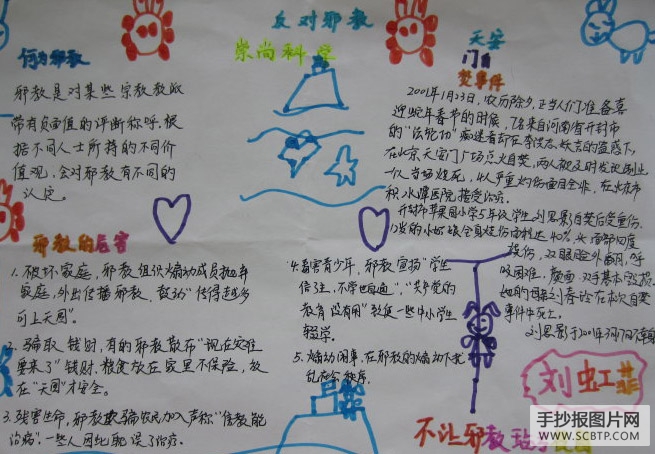 反对邪教
崇尚科学
何为邪教
邪教是对某些宗教教派
带有负面值的评断称呼,根
据不同人士所持的不同价
值观,会对邪教有不同的
认定。
邪教的危害
1.破坏家庭,邪教组织煽动成员抛弃
家庭,外出传播邪教,鼓动"传得越多
可上天国"。
2.骗取钱财,有的邪教散布"现在灾难
要来了"钱财、粮食放在家里不保险,放
在"天国"才安全。
3.残害生命,邪教欺骗农民加入声称"信教能
治病",一些人因此耽误了治疗。
4.毒害青少年,邪教宣扬"学生
信主,不学也能通","共产党的
教育没有用"致使一些中小学生
辍学。
5.煽动闹事,在邪教的煽动下扰
乱社会秩序。
天安
门自
焚事件
2001年1月23日,农历除夕,正当人们准备喜
迎蛇年春节的时候,7名来自河南省开封市
的"法轮功"痴迷者却在
在北京天安门广场点火自焚,
一人当场烧死,4人严重灼伤面目全非,在北京市
积水潭医院接受治疗。
开封市苹果园小学5年级学生刘思影自焚后受重伤,
12岁的小姑娘全身烧伤面积达40%,头面部四度
烧伤,双眼睑外翻,呼
吸困难,颜面、双手基本毁损,
她的母亲刘春玲在本次自焚
事件中死亡。
刘思影于2001年3月17日
刘虹菲
不让邪教
手抄报图片网
WWW.SCBTP.COM